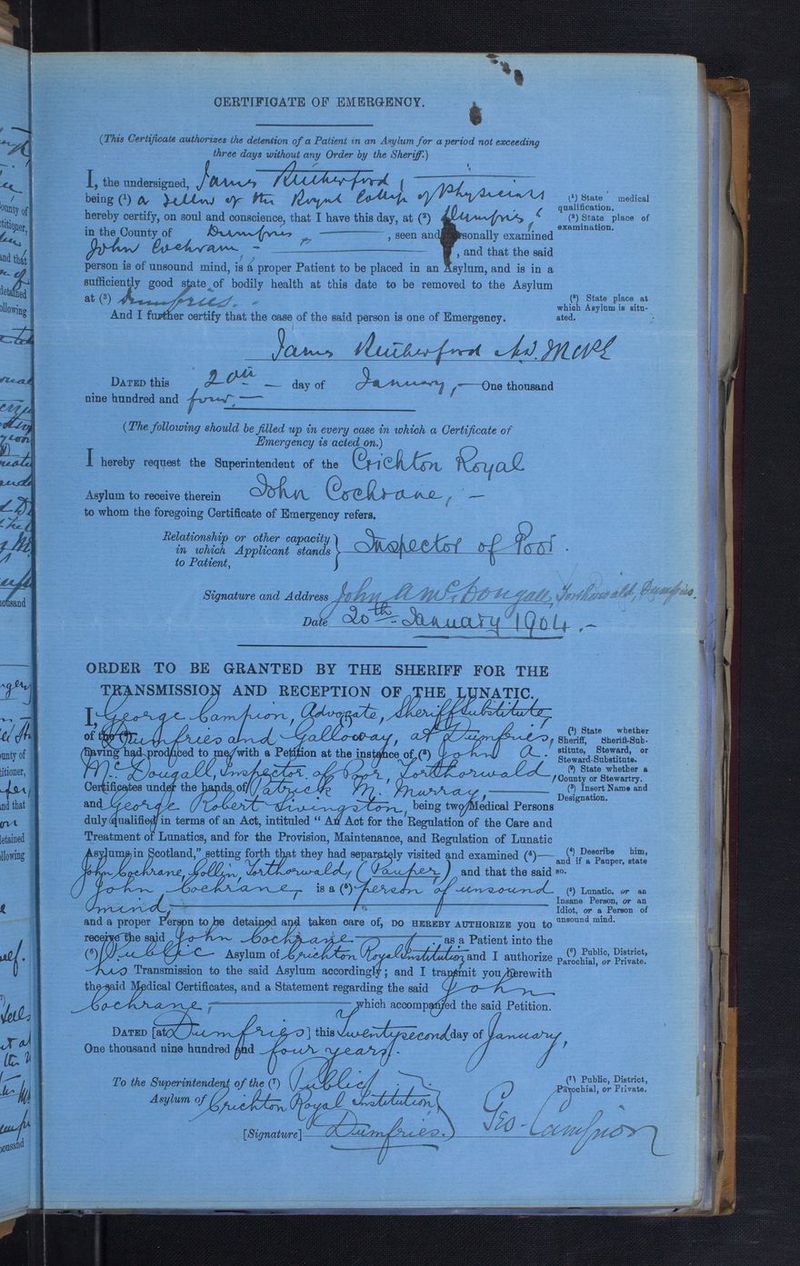 CERTIFICATE OF EMERGENCY.
(This Certificate authorizes the detention of a Patient in an Asylum for a period not exceeding
three days without any Order by the Sheriff.)
I, the undersigned, James Rutherford
being (¹) a Fellow of the Royal College of Physicians
(¹) State medical
qualification.
hereby certify, on soul and conscience, that I have this day, at (²) Dumfries
(²) State place of
examination.
in the County of Dumfries, seen and personally examined
John Cochrane, and that the said
person is of unsound mind, is a proper Patient to be placed in an Asylum, and is in a
sufficiently good state of bodily health at this date to be removed to the Asylum
at (³) Dumfries.
(³) State place at
which Asylum is situ-
ated.
And I further certify that the case of the said person is one of Emergency.
James Rutherford
DATED this 20th day of January, One thousand
nine hundred and four,
(The following should be filled up in every case in which a Certificate of
Emergency is acted on.)
I hereby request the Superintendent of the Crichton Royal
Asylum to receive therein John Cochrane,
to whom the foregoing Certificate of Emergency refers.
Relationship or other capacity
in which Applicant stands
to Patient,
Inspector of Poor.
Signature and Address John A McDougall, Torthorwald, Dumfries.
Date 20th January 1904.
ORDER TO BE GRANTED BY THE SHERIFF FOR THE
TRANSMISSION AND RECEPTION OF THE LUNATIC.
I, George Campion, Advocate, Sheriff Substitute
of the (²) Dumfries and Galloway, at Dumfries,
(¹) State whether
Sheriff, Sheriff-Sub-
stitute, Steward, or
Steward-Substitute.
having had produced to me, with a Petition at the instance of (³) John A.
(²) State whether a
County or Stewartry.
McDougall, Inspector of Poor, Torthorwald,
(³) Insert Name and
Designation.
Certificates under the hands of Patrick M. Murray,
and George Robert Livingston, being two Medical Persons
duly qualified in terms of an Act, intituled “An Act for the Regulation of the Care and
Treatment of Lunatics, and for the Provision, Maintenance, and Regulation of Lunatic
Asylums in Scotland,” setting forth that they had separately visited and examined (⁴)
(⁴) Describe him,
and if a Pauper, state
so.
John Cochrane, Collin, Torthorwald, (Pauper) and that the said
John Cochrane, is a (⁵) person of unsound
(⁵) Lunatic, or an
Insane Person, or an
Idiot, or a Person of
unsound mind.
mind,
and a proper Person to be detained and taken care of, DO HEREBY AUTHORIZE you to
receive the said John Cochrane as a Patient into the
(⁶) Public Asylum of Crichton Royal Institution and I authorize
(⁶) Public, District,
Parochial, or Private.
his Transmission to the said Asylum accordingly; and I transmit you herewith
the said Medical Certificates, and a Statement regarding the said John
Cochrane, which accompanied the said Petition.
DATED [at Dumfries] this twenty second day of January,
One thousand nine hundred and four years.
To the Superintendent of the (⁷) Public
(⁷) Public, District,
Parochial, or Private.
Asylum of Crichton Royal Institution,
Dumfries.
[Signature] Geo. Campion